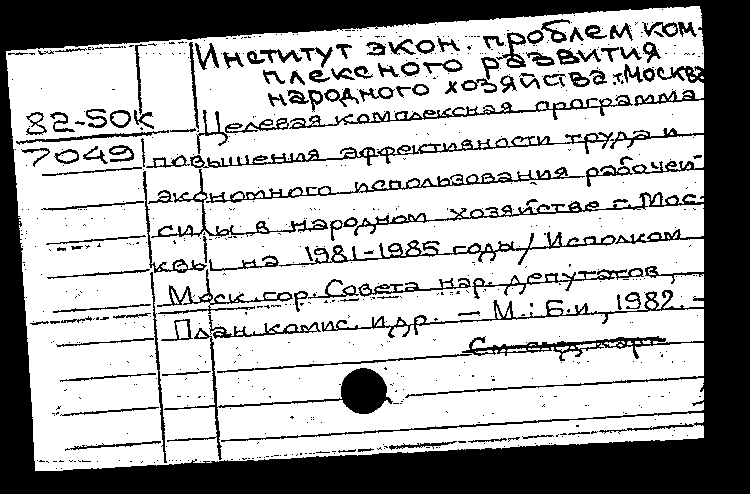 Институт экон. проблем ком-
плексного развития
народного хозяйства г. Москвы
82-50К
7049
Целевая комплексная программа
повышения эффективности труда и
экономного использования рабочей
силы в народном хозяйстве г. Мос-
квы на 1981-1985 годы / Исполком
Моск. гор. Совета нар. депутатов,
План. комис. и др. — М.: Б.и., 1982. –
См. след. карт.